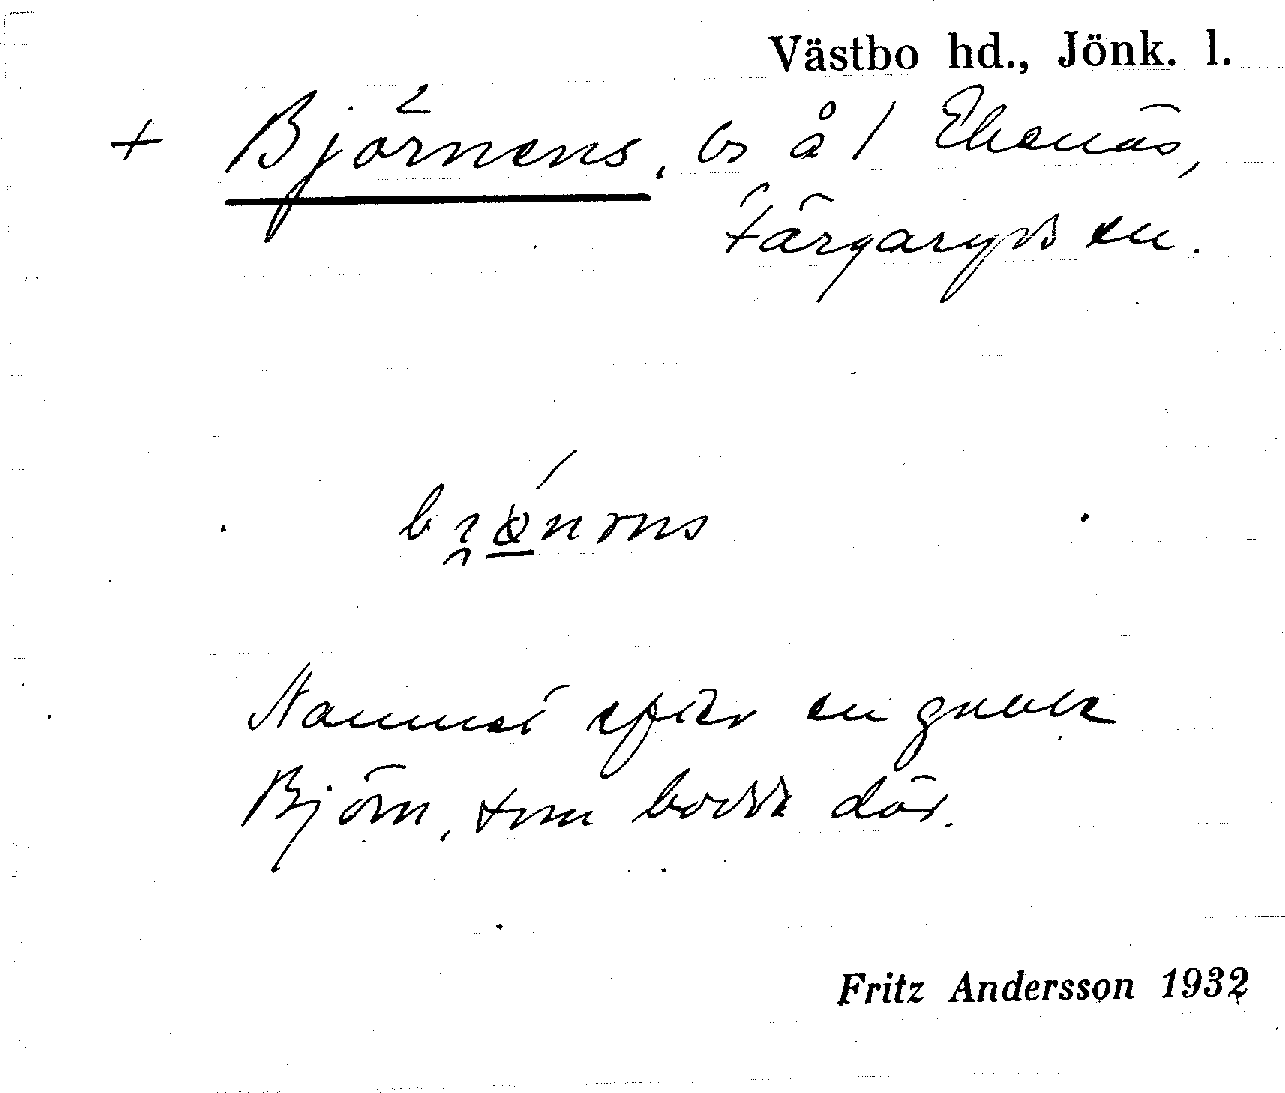 Västbo hd., Jönk. l.
+ Björnens, bs å 1 Ekenäs,
Färgaryds sn.
Namnet efter en gubbe
Björn, som bodde där.
Fritz Andersson 1932